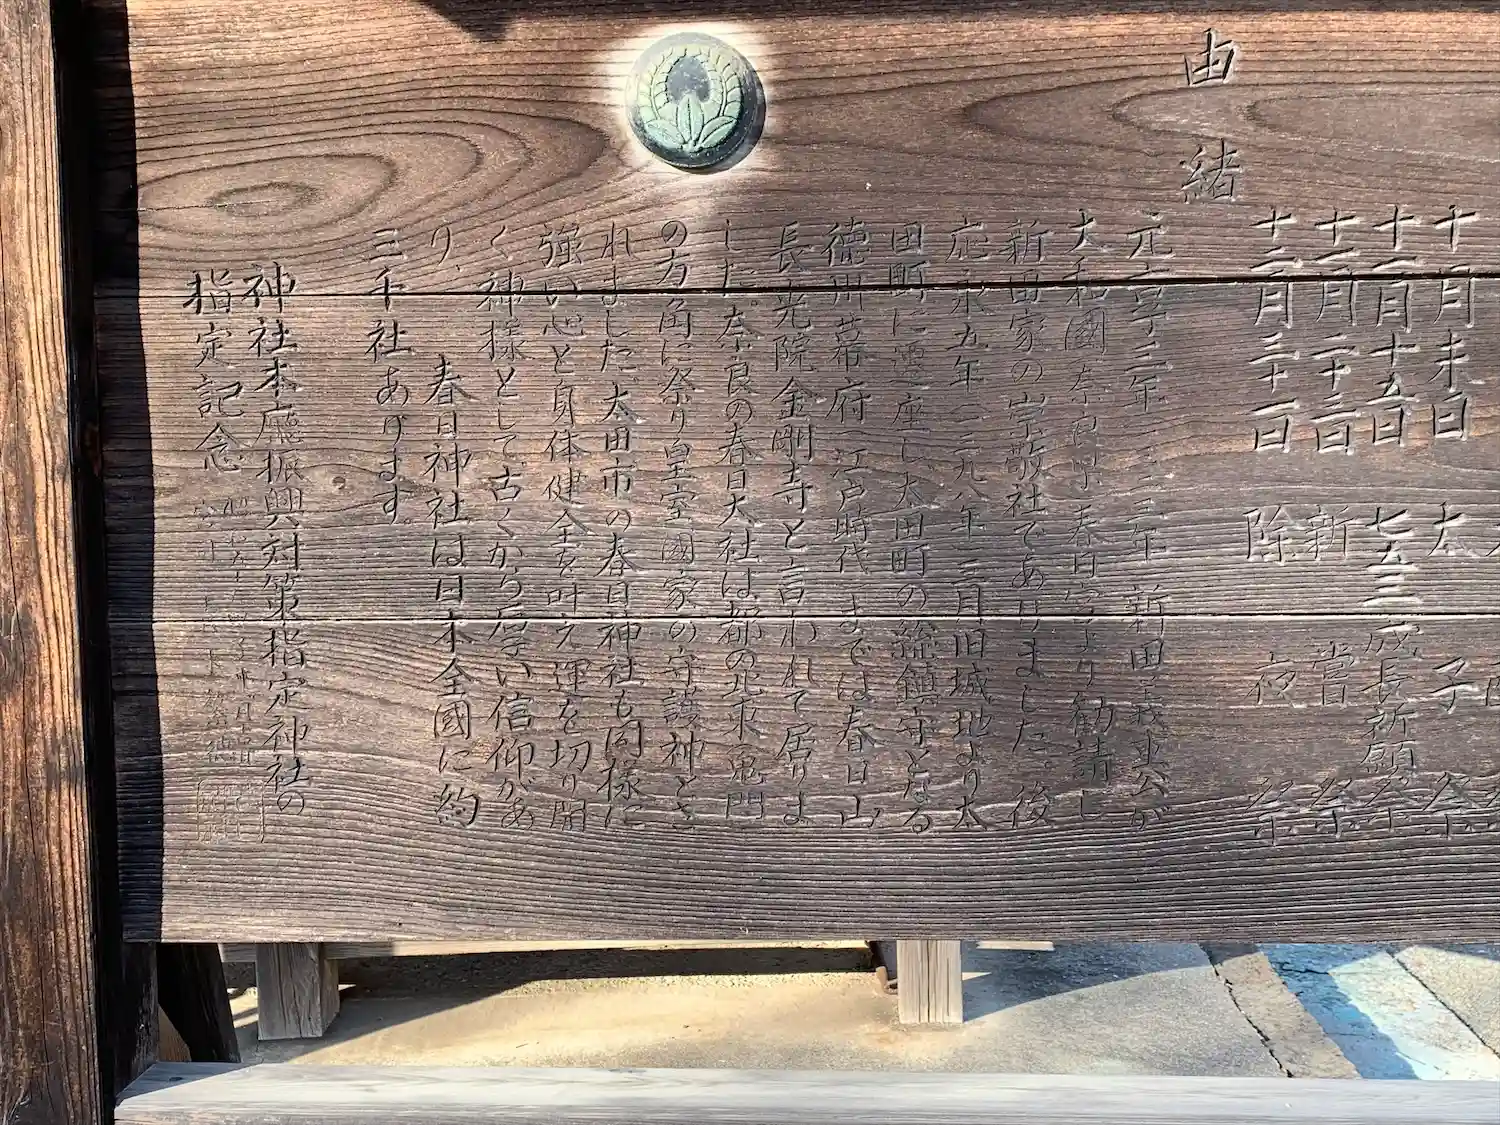 十一月末日 太子祭
十一月十五日 七五三成長祈願祭
十一月二十三日 新嘗祭
十二月三十一日 除夜祭
由緒
元亨三年 新田義重公が
大和國奈良県春日宮より勧請し
新田家の崇敬社でありました。後
応永五年 一三九八年 三月旧城地より太
田町に遷座し、太田町の総鎮守となる
徳川幕府 江戸時代 までは春日山
長光院金剛寺と言われて居りま
した。奈良の春日大社は都の北東鬼門
の方角に祭り皇室國家の守護神とさ
れました。太田市の春日神社も同様に
強い心と身体健全を叶え運を切り開
く神様として古くから厚い信仰があ
り、
春日神社は日本全國に約
三千社あります。
神社本廳振興対策指定神社の
指定記念